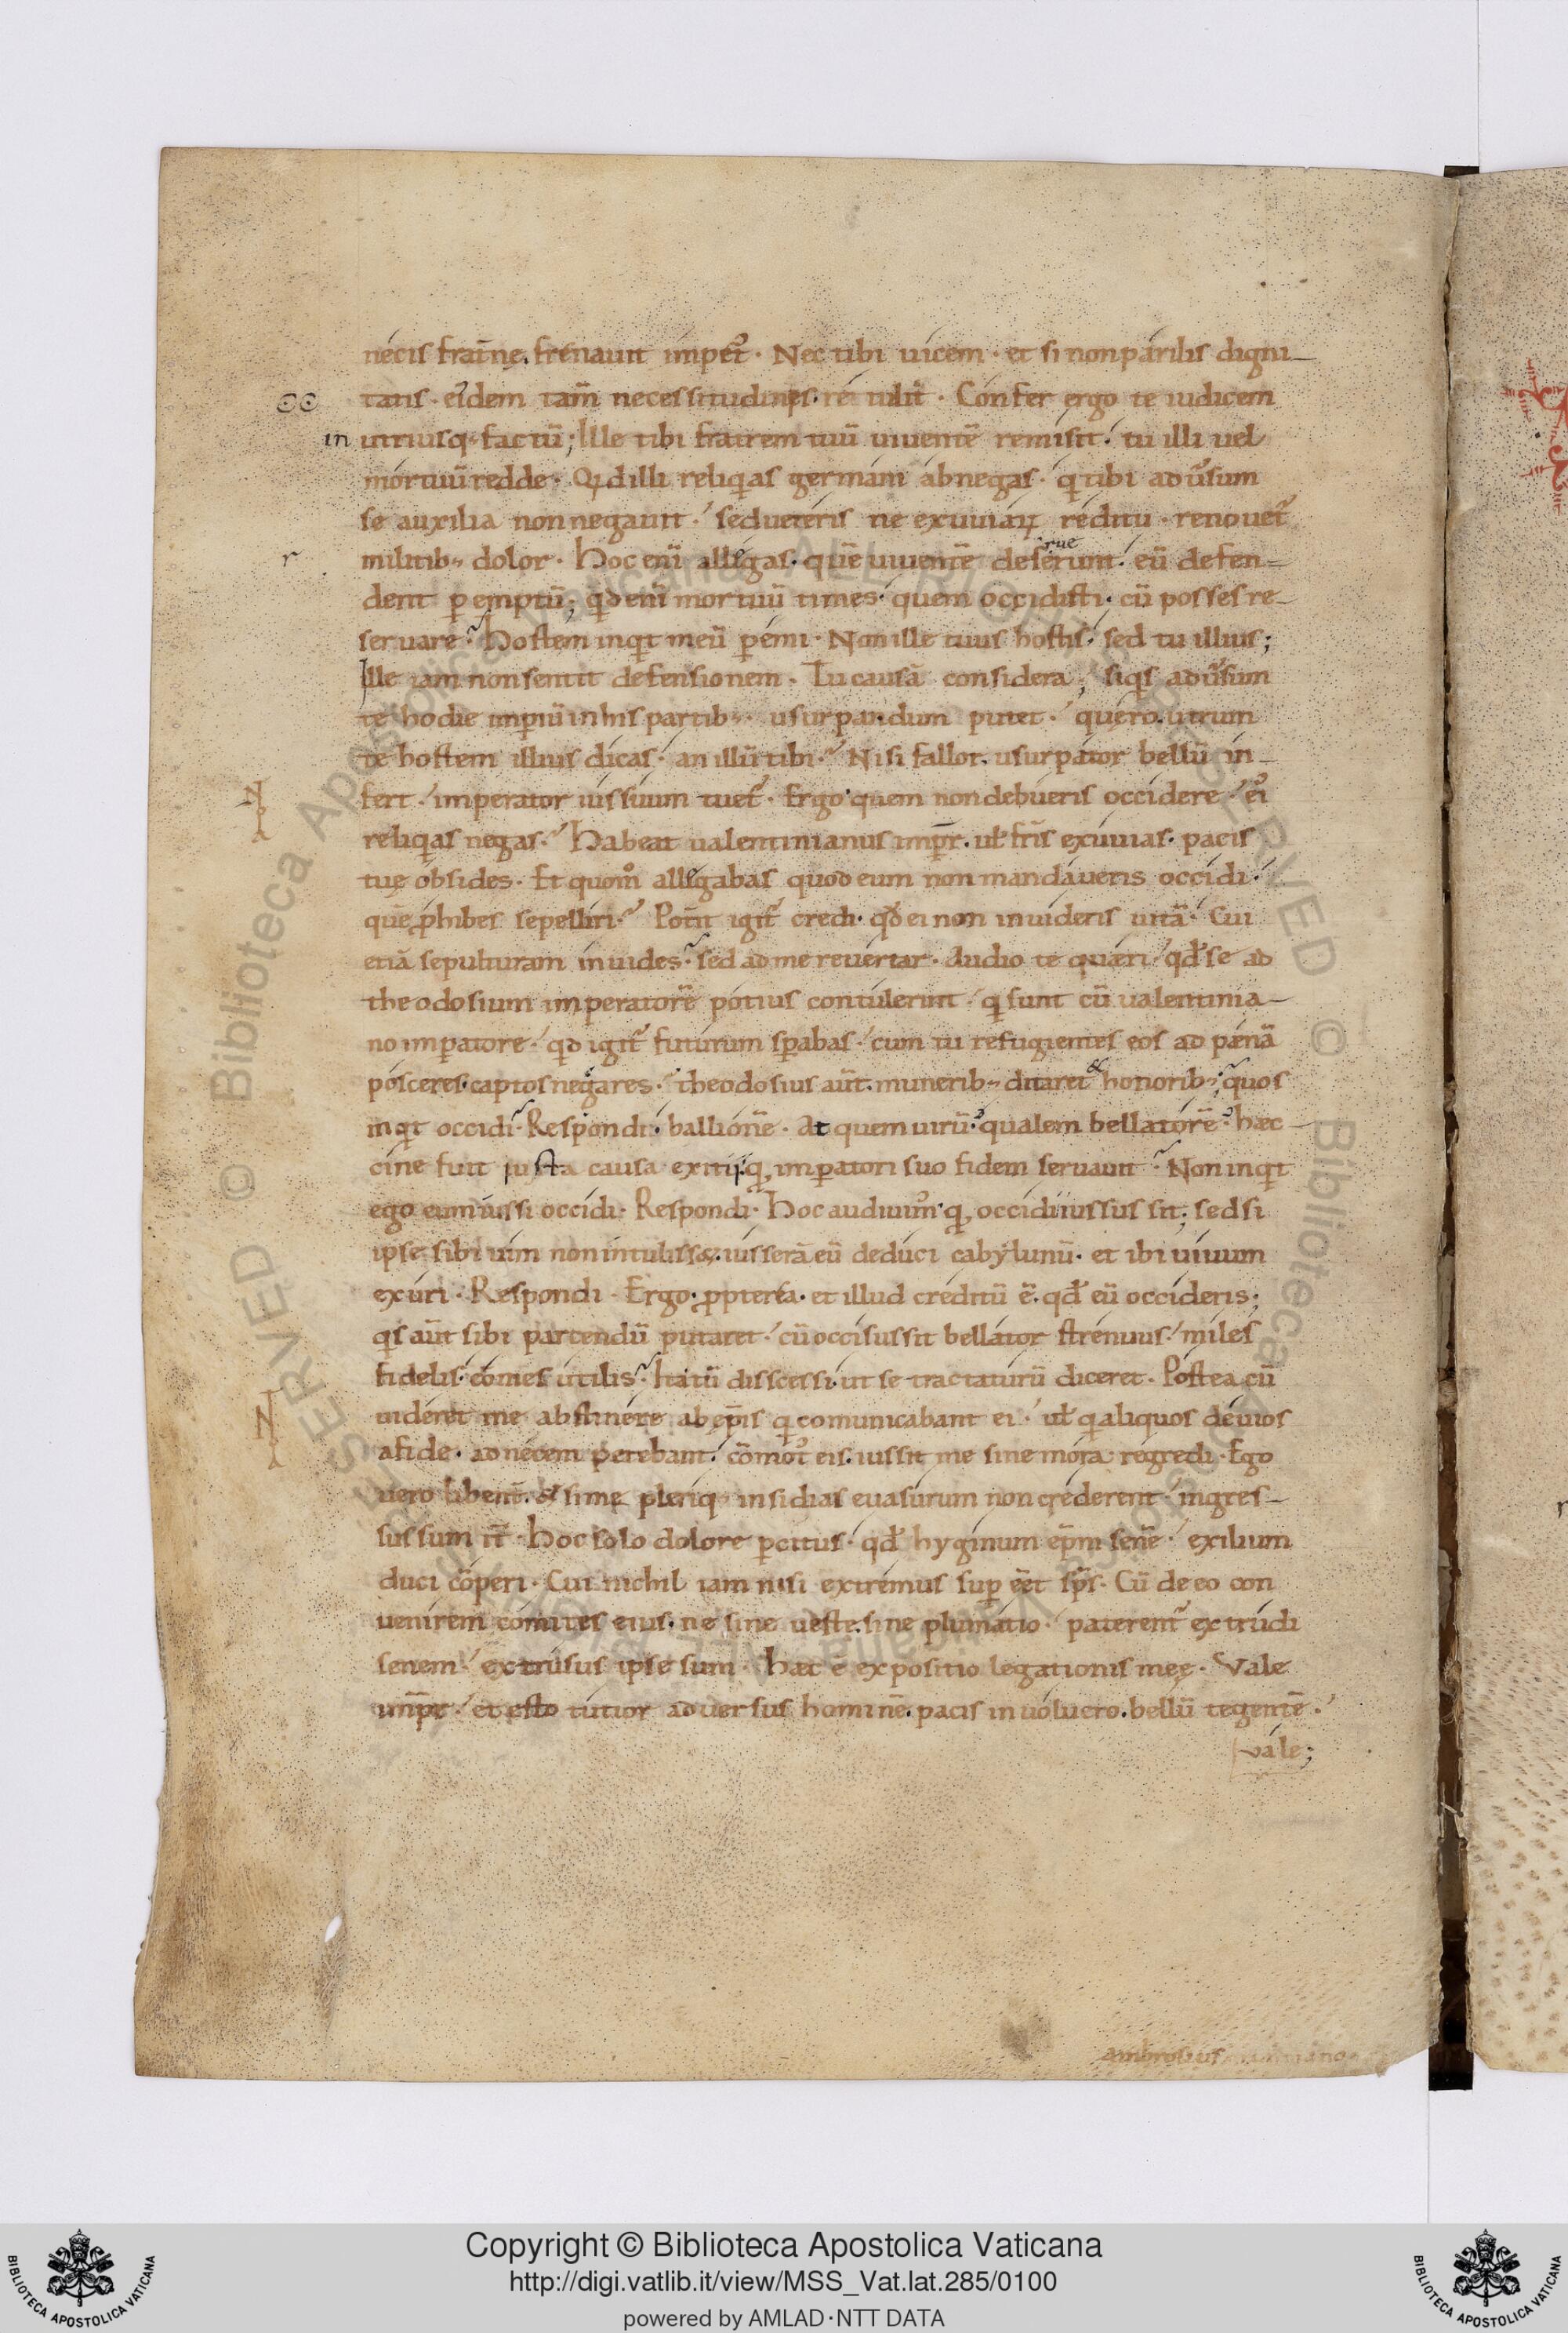 necis frat̄nę. frenauit impet᷒· Nec tibi uicem· et si non parilis digni-
tatis· eidem tam̄ necessitudinis· retulit· Confer ergo te iudicem
in utriusq· factū; Ille tibi fratrem tuū uiuentē remisit· tu illi uel
mortuū redde· Qd illi reliqias germani abnegas· qi tibi aduersum
se auxilia non negauit· sed ueteris ne exuuiaꝝ reditu· renouet᷒
r militib; dolor· Hoc eni allegas· quē uiuentē deserunt rue eū defen-
dent pemptū; qd enī mortuū times· quem occidisti· cū posses re-
seruare· Hostem inqt meū pemi· Non ille tuus hostis· sed tu illius;
Ille iam non sentit defensionem· Tu causā considera; siqs aduersum
te hodie impiū in his partib; usurpandum putet· quero. utrum
te hostem illius dicas· an illū tibi· Nisi fallor. usurpator bellū in-
fert· imperator ius suum tuet᷒· Ergo quem non debueris occidere· ei᷒
reliqias negas· Habeat ualentinianus imp̄r. uł fr̄is exuuias· pacis
tuę obsides· Et quom̊ allegabas quod eum non mandaueris occidi·
quē ꝓhibes sepelliri· Pot̄it igit᷒ credi· qd̄ ei non inuideris uitā· Cui
etiā sepulturam inuides· sed ad me reuertar· Audio te quęri· qd̄ se ad
theodosium imperatorē potius contulerint· qi sunt cū ualentinia-
no impatore· qd igit᷒ futurum spabas· cum tu refugientes eos ad pęnā
posceres· captos negares· theodosius aūt. munerib; ditaret & honorib; quos
inqt occidi· Respondi· ballionē· At quem uirū· qualem bellatorē· hæc
cine fuit iusta causa exitii· qꝫ impatori suo fidem seruauit· Non inqt
ego eum iussi occidi· Respondi· Hoc audiuim᷒· qꝫ occidi iussus sit; sed si
ipse sibi uim non intuliss&· iusserā eū deduci cabylunū· et ibi uiuum
exuri· Respondi· Ergo ꝓpterea· et illud creditū ē· qd̄ eū occideris;
qs aūt sibi parcendū putaret· cū occisus sit bellator strenuus· miles
fidelis· comes utilis· Ita tū disscessi· ut se tractaturū diceret· Postea cū
uideret me abstinere ab ep̄is qi comunicabant ei· uł qi aliquos deuios
a fide· ad necem petebant· cōmot᷒ eis. iussit me sine mora regredi· Ego
uero libent̄. & si me pleriq· insidias euasurum non crederent· ingres-
sus sum it̄· Hoc solo dolore pcitus· qd̄ hyginum ep̄m senē· exilium
duci cōperi· Cui nichil iam nisi extremus sup eēt sp̄s· Cū de eo con
uenirem comites eius. ne sine ueste. sine plumatio· paterent᷒ extrudi
senem· extrusus ipse sum· Hæc ē expositio legationis meę· Vale
imp̄r· et esto tutior aduersus hominē. pacis inuolucro. bellū tegentē·
Vale;
Ambrosius
Copyright © Biblioteca Apostolica Vaticana
http://digi.vatlib.it/view/MSS_Vat.lat.285/0100
powered by AMLAD·NTT DATA
BIBLIOTECA APOSTOLICA VATICANA
BIBLIOTECA APOSTOLICA VATICANA